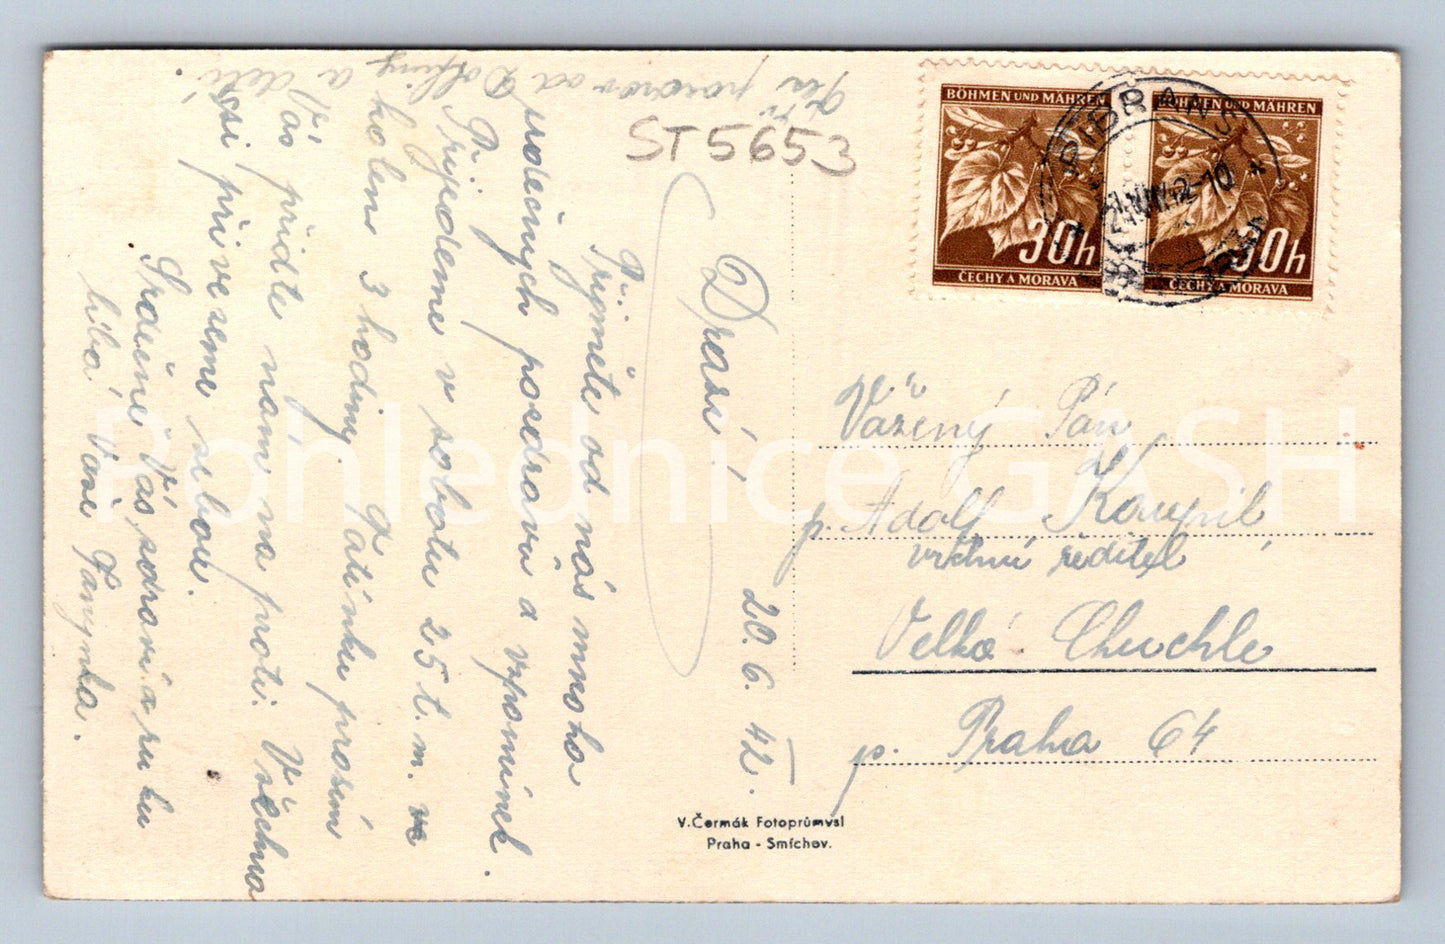 BÖHMEN UND MÄHREN
30h
ČECHY A MORAVA
BÖHMEN UND MÄHREN
30h
ČECHY A MORAVA
ST5653
Drazí, 20. 6. 42.
Přijměte od nás mnoho
srdečných pozdravů a vzpomínek.
Přijedeme v sobotu 25 t. m. ve
kolem 3 hodiny Tatínku prosím
Vás přijďte nám na proti. Všechno
si přivezeme sebou.
Srdečně Vás zdraví a ruku
líbá Vaše Fanynka.
pozdrav od
a dětí
Vážený Pán
p. Adolf Koupil
vrchní ředitel
Velká Chuchle
p. Praha 64
V. Čermák Fotoprůmysl
Praha - Smíchov.
Pohlednice GASH